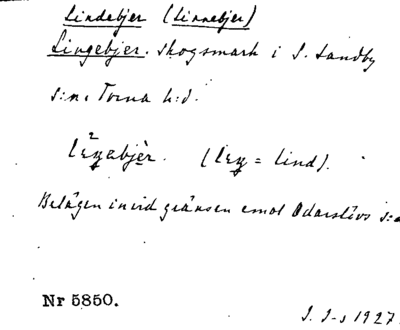 Lindebjer (Linnebjer)
Lingebjer. Skogsmark i S. Sandby
s:n. Torna h:d.
(leŋ = lind).
Belägen invid gränsen emot Odarslövs s:n
Nr 5850.
1927.